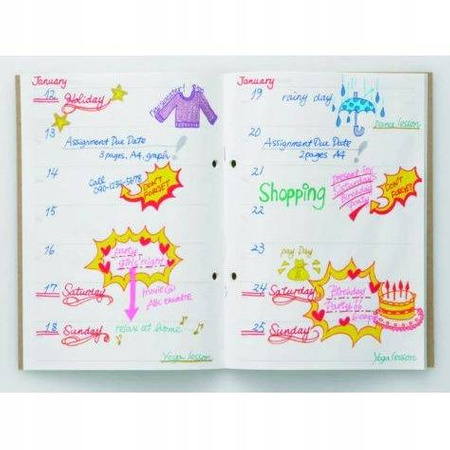 January
12 Holiday
13
Assignment Due Date
3 pages, A4, graph
14 Call
090-1234-5678
DON'T
FORGET
15
16 party
girls' night
17 Saturday
movie @
ABC theatre
18 Sunday
relax at home...
Yoga lesson
January
19 rainy day
Dance lesson
20
Assignment Due Date
2 pages, A4
21
Shopping
Present for
Birthday
Party
DON'T
FORGET
22
23
pay Day
24 Saturday
Birthday
Party
25 Sunday
Yoga lesson